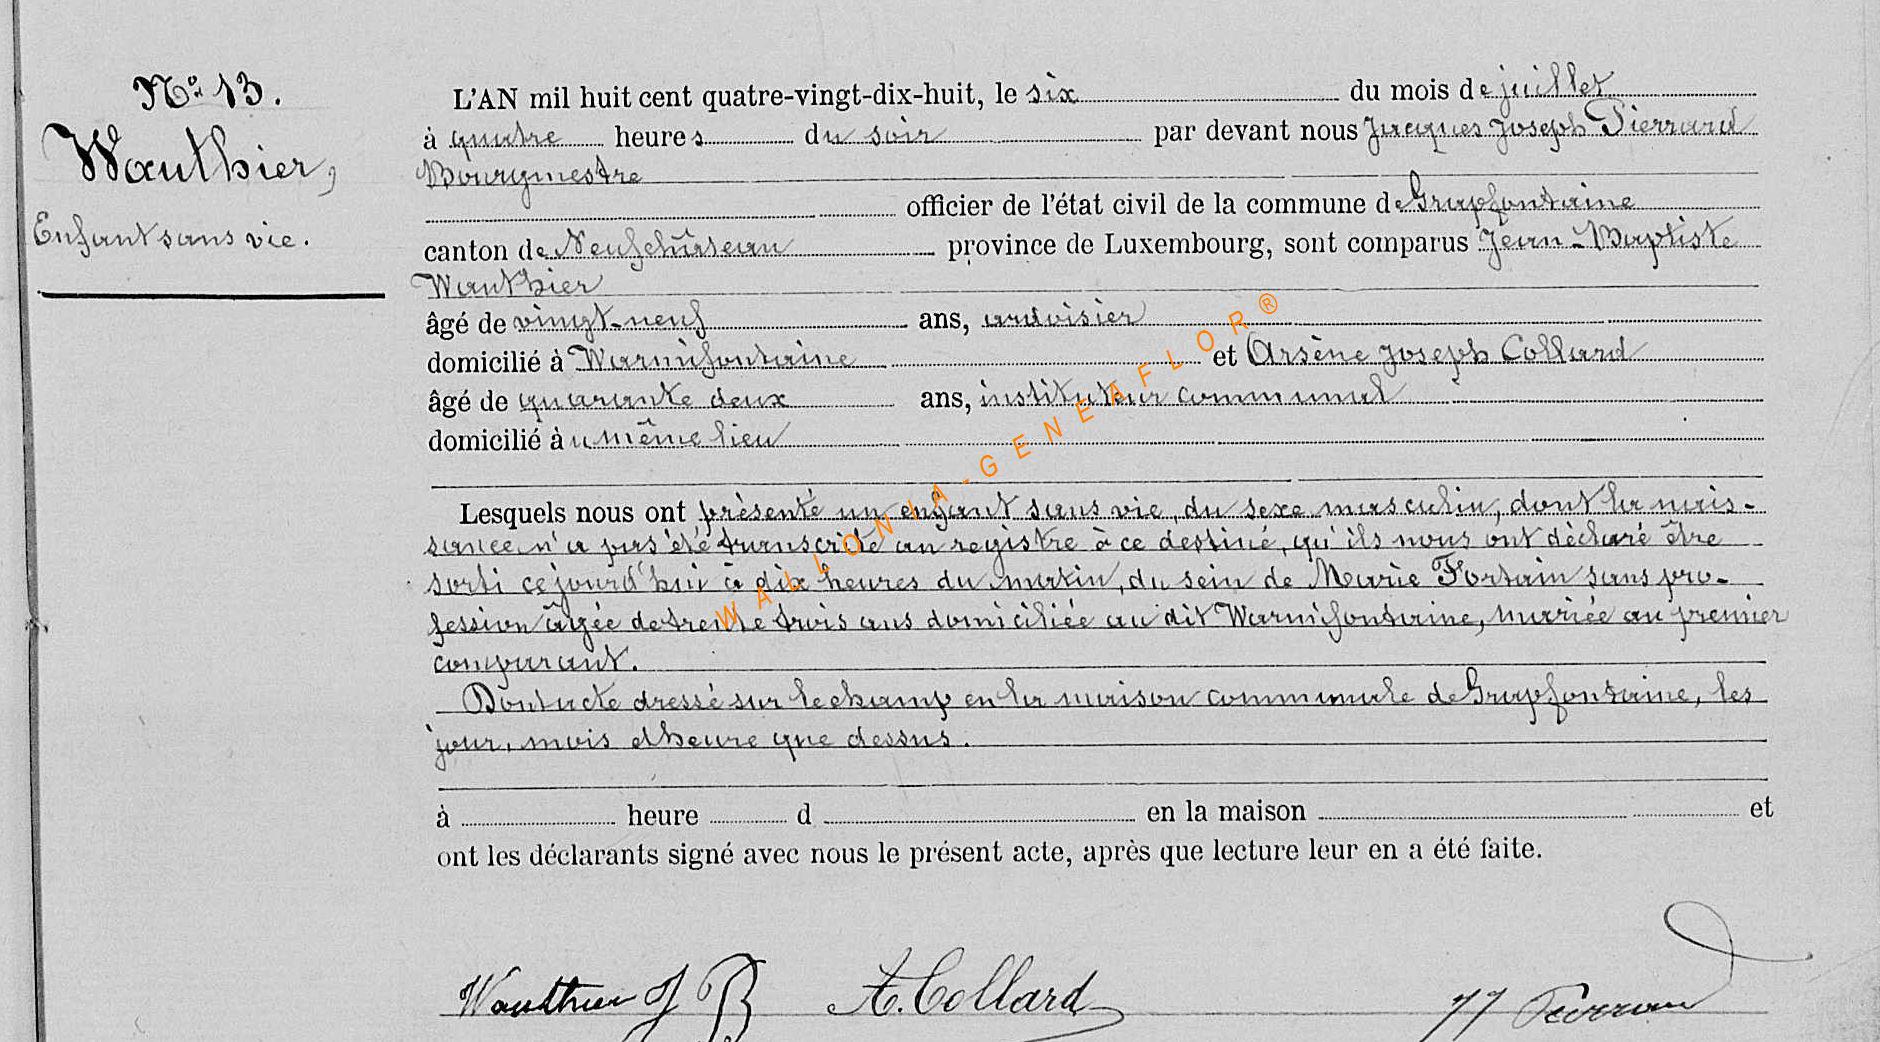 N° 13.
Wauthier,
Enfant sans vie.
L'AN mil huit cent quatre-vingt-dix-huit, le six du mois de juillet
à quatre heures du soir par devant nous Jacques Joseph Pierrard
Bourgmestre
officier de l'état civil de la commune de Grapfontaine
canton de Neufchâteau province de Luxembourg, sont comparus Jean-Baptiste
Wauthier
âgé de vingt-neuf ans, ardoisier
domicilié à Warmifontaine et Arsène Joseph Collard
âgé de quarante deux ans, instituteur communal
domicilié au même lieu
Lesquels nous ont présenté un enfant sans vie, du sexe masculin, dont la nais-
sance n'a pas été transcrite au registre à ce destiné, qu'ils nous ont déclaré être
sorti cejourd'hui à dix heures du matin, du sein de Marie Fortain sans pro-
fession âgée de trente trois ans domiciliée au dit Warmifontaine, mariée au premier
comparant.
Dont acte dressé sur le champ en la maison communale de Grapfontaine, les
jour, mois et heure que dessus.
à heure d en la maison et
ont les déclarants signé avec nous le présent acte, après que lecture leur en a été faite.
Wauthier J B A. Collard JJ Pierrard
WALLONIA-GENEAFLOR®